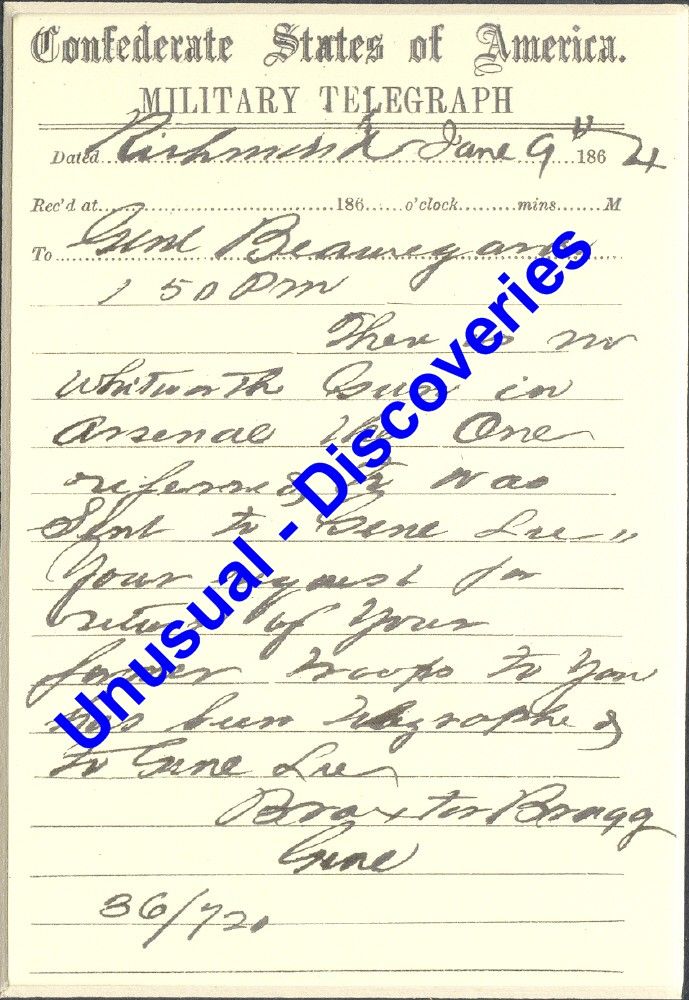 Confederate States of America.
MILITARY TELEGRAPH
Dated Richmond June 9th 1864
Rec'd at 186 o'clock mins M
To Genl Beauregard
1 50 Pm
There is no
Whitworth Gun in
Arsenal the One
referred to was
Sent to Genl Lee
Your request for
return of Your
former troops to You
has been telegraphed
to Genl Lee
Braxton Bragg
Genl
36/720
Unusual - Discoveries